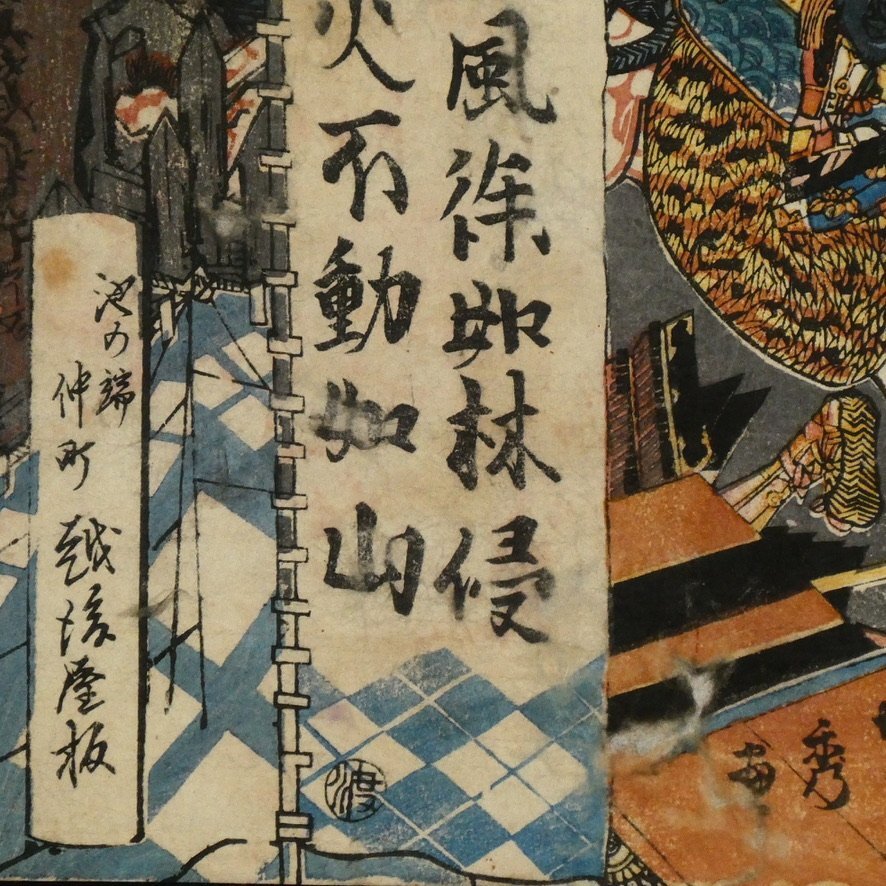 風徐如林侵
火不動如山
池の端
仲町 越後屋板
渡
秀
画